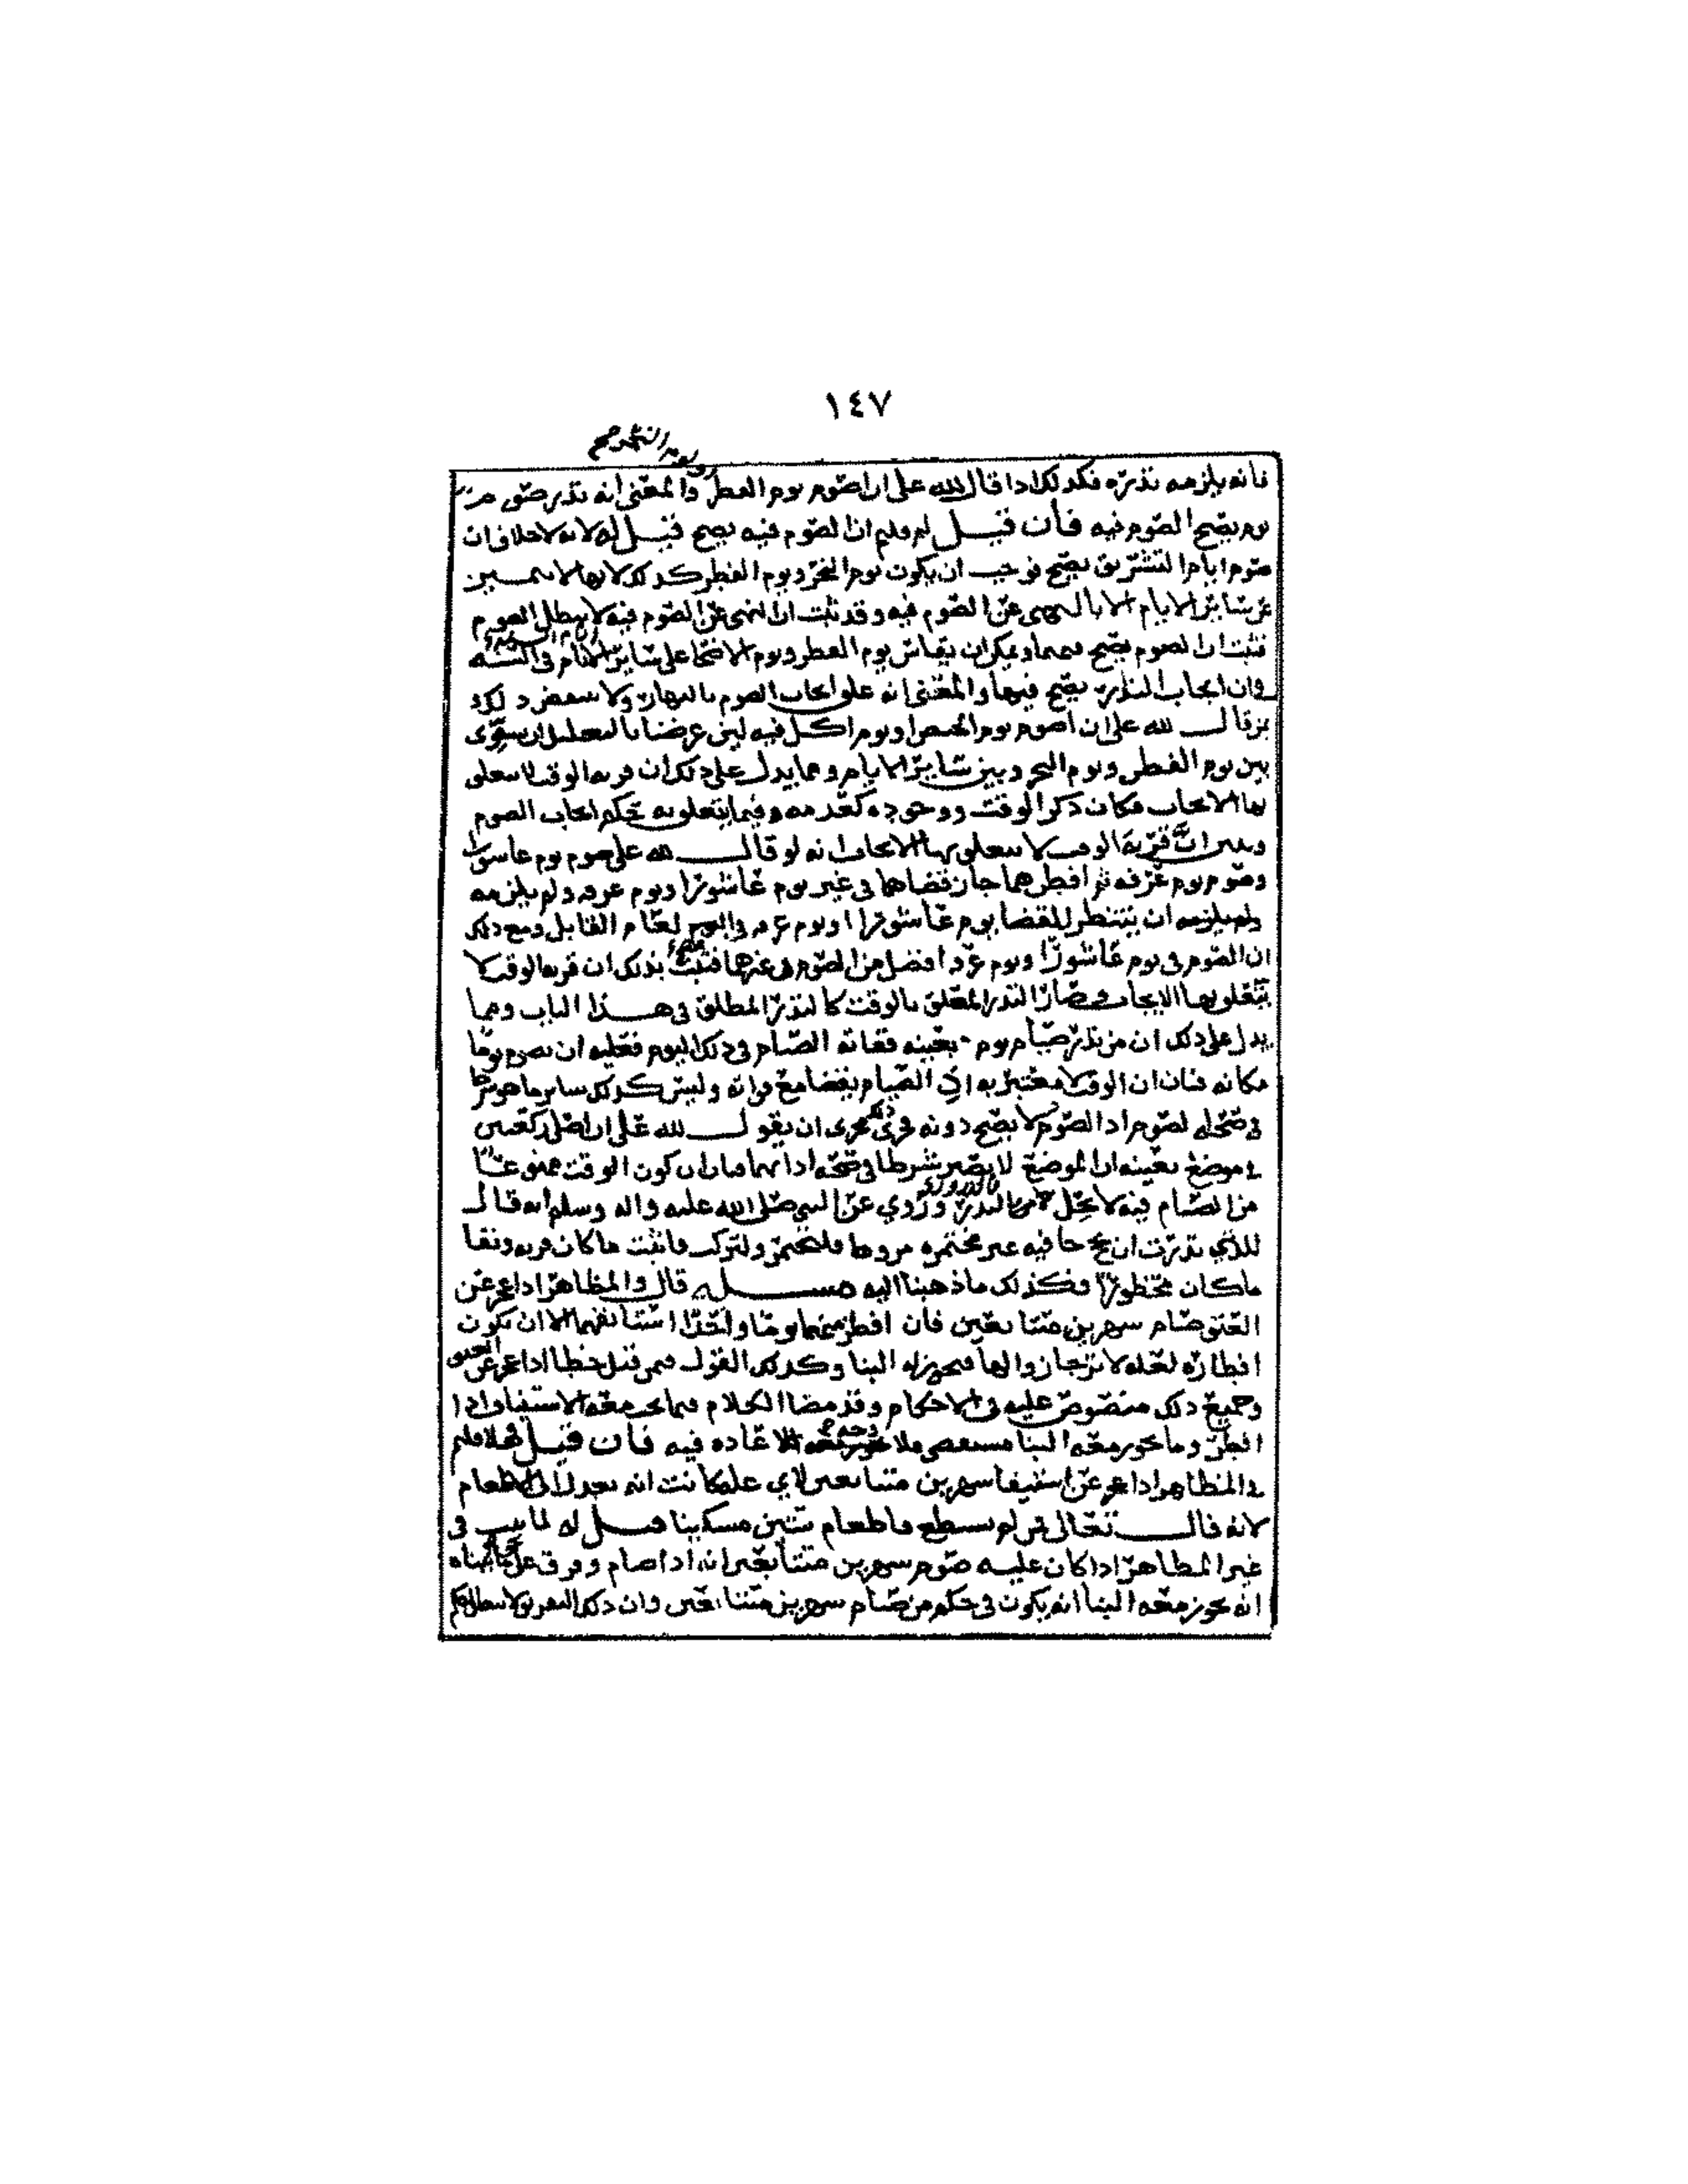 ١٤٧
ويوم النحر صح
فانه يلزمه نذره فكذلك اذا قال لله علي ان اصوم يوم الفطر والمعنى انه نذر صوم
يوم يصح الصوم فيه فان قيل لم قلتم ان الصوم فيه يصح قيل له لانه لا خلاف ان
صوم ايام التشريق يصح فوجب ان يكون يوم النحر ويوم الفطر كذلك لانها لا تتميز
عن سائر الايام الا بالنهي عن الصوم فيه وقد ثبت ان النهي عن الصوم فيه لا يبطل الصوم
فثبت ان الصوم يصح فيهما ويمكن ان يقاس يوم الفطر ويوم الاضحى على سائر الايام في السنة
وان ايجاب النذر يصح فيها والمعنى انه علق ايجاب الصوم بالنهار ولا ينتقض ذلك
بمن قال لله علي ان اصوم يوم الحيض او يوم اكل فيه ليس غرضنا بالتعليل ان يسوى
بين يوم الفطر ويوم النحر وبين سائر الايام ومما يدل على ذلك ان قربة الوقت لا يتعلق
بها الايجاب فكان ذكر الوقت ووجوده كعدمه فيما يتعلق به حكم ايجاب الصوم
ويبين ان قربة الوقت لا يتعلق بها الايجاب انه لو قال لله علي صوم يوم عاشورا
وصوم يوم عرفه ثم افطرهما جاز قضاهما في غير يوم عاشورا ويوم عرفه ولم يلزمه
ان ينتظر للقضا يوم عاشورا او يوم عرفه لعام القابل ومع ذلك
ان الصوم في يوم عاشورا ويوم عرفه افضل من الصوم في غيرهما فثبت بذلك ان قربة الوقت لا
يتعلق بها الايجاب وصار النذر المعلق بالوقت كالنذر المطلق في هذا الباب ومما
يدل على ذلك ان من نذر صيام يوم بعينه ففاته الصيام في ذلك اليوم فعليه ان يصوم يوما
مكانه فبان ان الوقت لا معتبر به اذ الصيام يقضا مع فواته وليس كذلك سائر ما هو شرط
في صحة الصوم اذ الصوم لا يصح دونه فجرى ذلك مجرى ان يقول لله علي ان اصلي ركعتين
في موضع بعينه ان الموضع لا يصير شرطا في صحة ادائهما فبان ان كون الوقت ممنوعا
من الصيام فيه لا يخل بالنذر وروي عن النبي صلى الله عليه واله وسلم انه قال
للذي نذرت ان تحج حافيه غير مختمره مروها فلتختمر ولتركب فاثبت ما كان قربه ونفا
ما كان محظورا فكذلك ما ذهبنا اليه مسلة قال والمظاهر اذا عجز عن
العتق صام شهرين متتابعين فان افطر منهما يوما واحدا استانفهما الا ان يكون
افطاره لعلة لا يرجا زوالها فيجوز له البنا وكذلك القول فيمن قتل خطا اذا عجز عن العتق
وجميع ذلك منصوص عليه في الاحكام وقد مضا الكلام فيما يجب معه الاستيناف اذا
افطر وما يجوز معه البنا مستقصى فلا وجه للاعادة فيه فان قيل فهلا قلتم
في المظاهر اذا عجز عن استيفا شهرين متتابعين لاي علة كانت انه يعدل الى الاطعام
لانه قال تعالى فمن لم يستطع فاطعام ستين مسكينا قيل له لما ثبت في
غير المظاهر اذا كان عليه صوم شهرين متتابعين انه اذا صام وفرق على ما بيناه
انه يجوز معه البنا انه يكون في حكم من صام شهرين متتابعين وان ذلك التفريق لا يبطل حكم